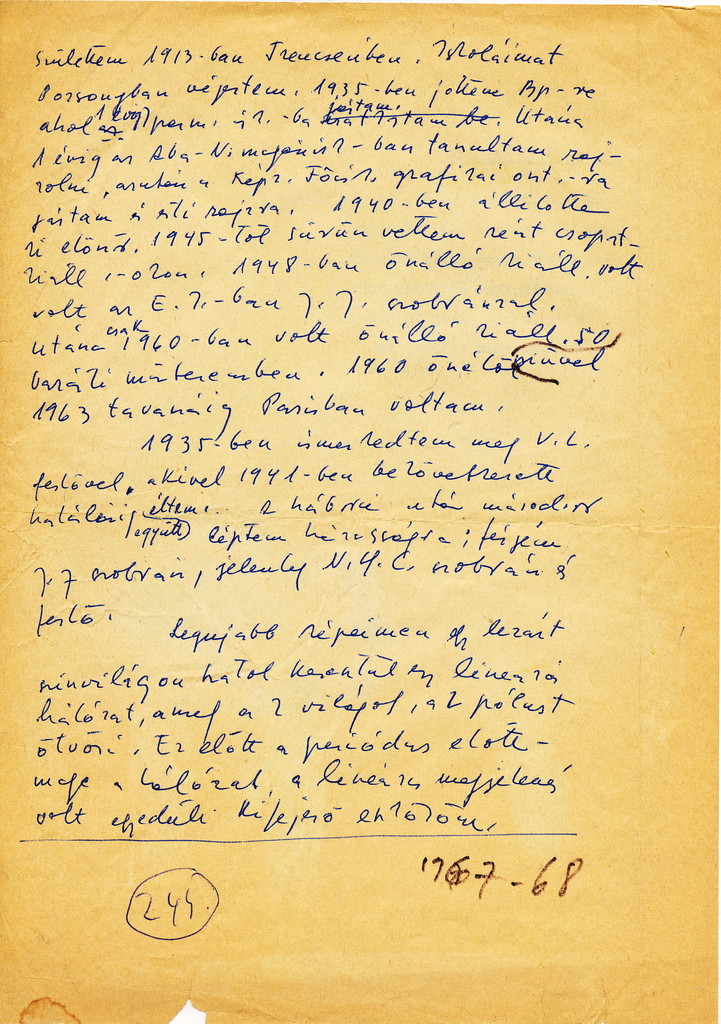 Születtem 1913-ban Trencsénben. Iskoláimat
Pozsonyban végeztem. 1935-ben jöttem Bp-re
ahol 1 évig ip. -ba jártam. Utána
1 évig az Aba-Novak -ban tanultam raj-
zolni, azután a Képz. Főisk. grafikai oszt.-ra
jártam és esti rajzra. 1940-ben állitotta
ki először. 1945-től sűrűn vettem részt csoport-
kiáll.-okon. 1948-ban önálló kiáll. volt
volt az E. I.-ban J. J. szobrásszal.
Utána csak 1960-ban volt önálló kiáll. 50
baráti műteremben. 1960 önálló művel
1963 tavaszáig Párisban voltam.
1935-ben ismerkedtem meg V. L.
festővel, akivel 1941-ben bekövetkezett
haláláig éltem együtt. A háború után másodszor
léptem házasságra; férjem
J. J. szobrász, jelenleg N.Y.C. szobrász és
festő.
Legujabb képeimen egy lezárt
szinvilágon hatol keresztül egy lineáris
hálózat, amely a 2 világot, a 2 pólust
ötvözi. Ez előtt a periódus előtt
maga a hálózat, a lineáris megjelenés
volt egyedüli kifejező eszközöm.
1967-68
244.